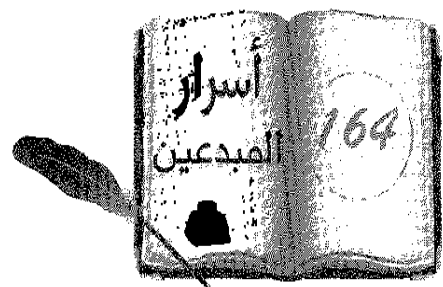 أسرار
المبدعين
164